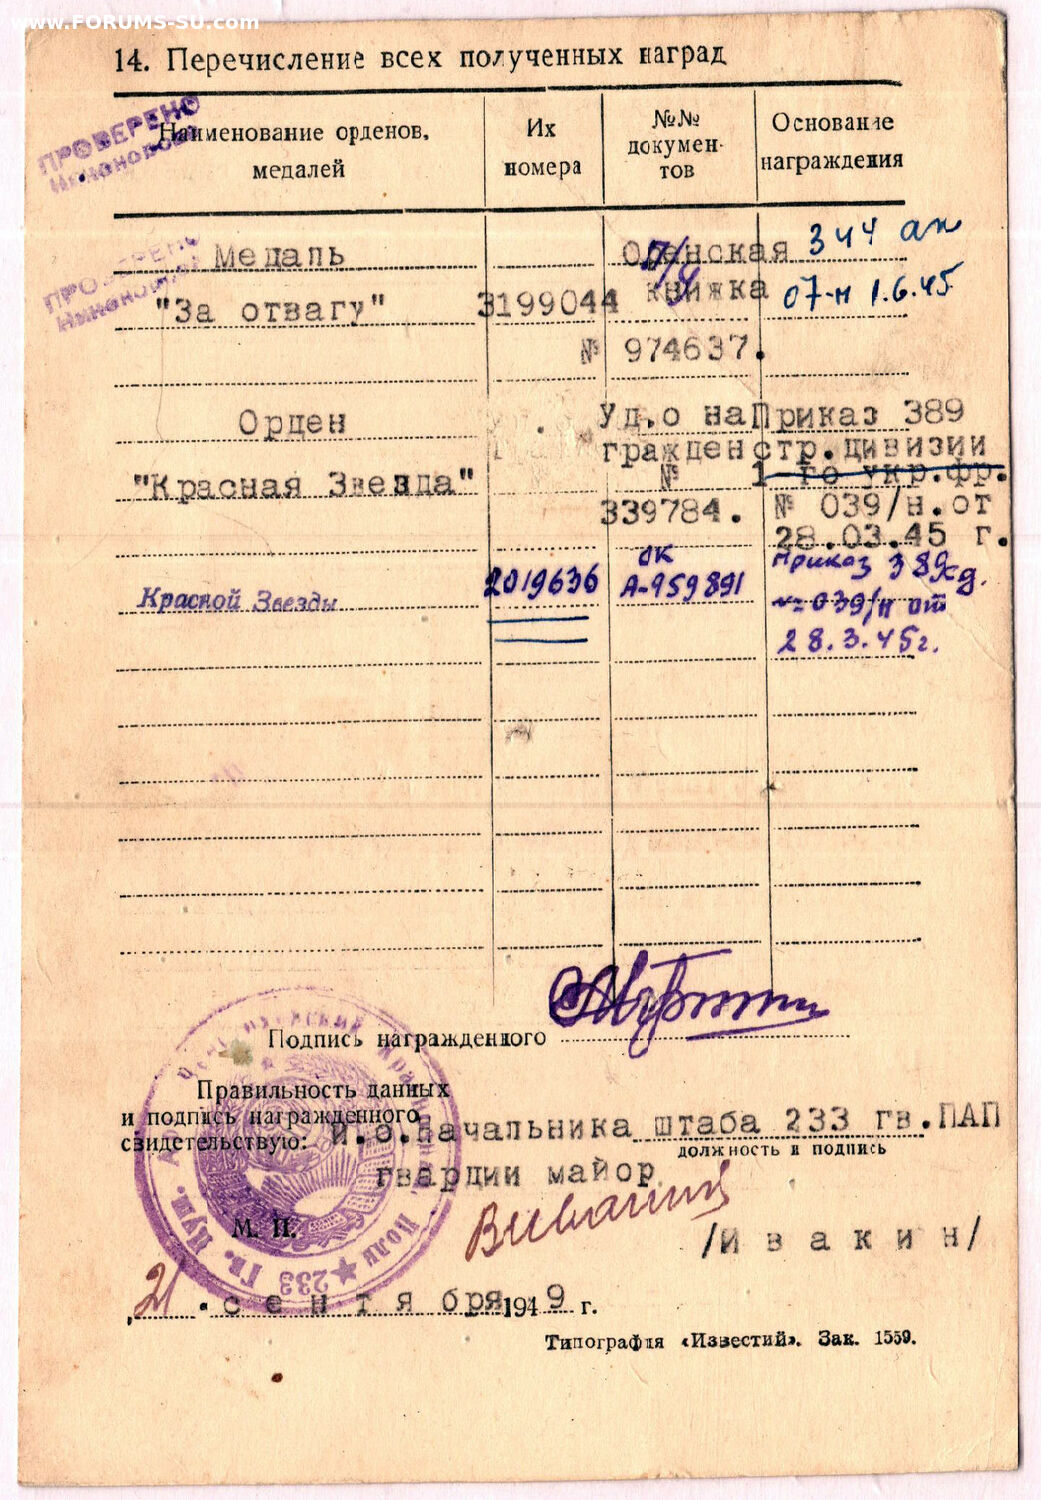 www.FORUMS-SU.com
14. Перечисление всех полученных наград
ПРОВЕРЕНО
Наименование орденов, медалей
Их номера
№№ документов
Основание награждения
ПРОВЕРЕНО
Медаль
книжка
344 ап
"За отвагу"
3199044
07-н 1.6.45
№ 974637.
Орден
Уд.о на
Приказ 389
гражден
стр.дивизии
"Красная Звезда"
№
1-го укр.фр.
339784.
№ 039/н.от
28.03.45 г.
Красной Звезды
2019636
ОК
А-959891
Приказ 389 сд.
№ 039/н от
28.3.45г.
Подпись награжденного
Правильность данных
и подпись награжденного
свидетельствую:
И.о.Начальника штаба 233 гв.ПАП
должность и подпись
гвардии майор
М. П.
/И в а к и н/
21 . с е н т я бря 1949 г.
Типография «Известий». Зак. 1559.